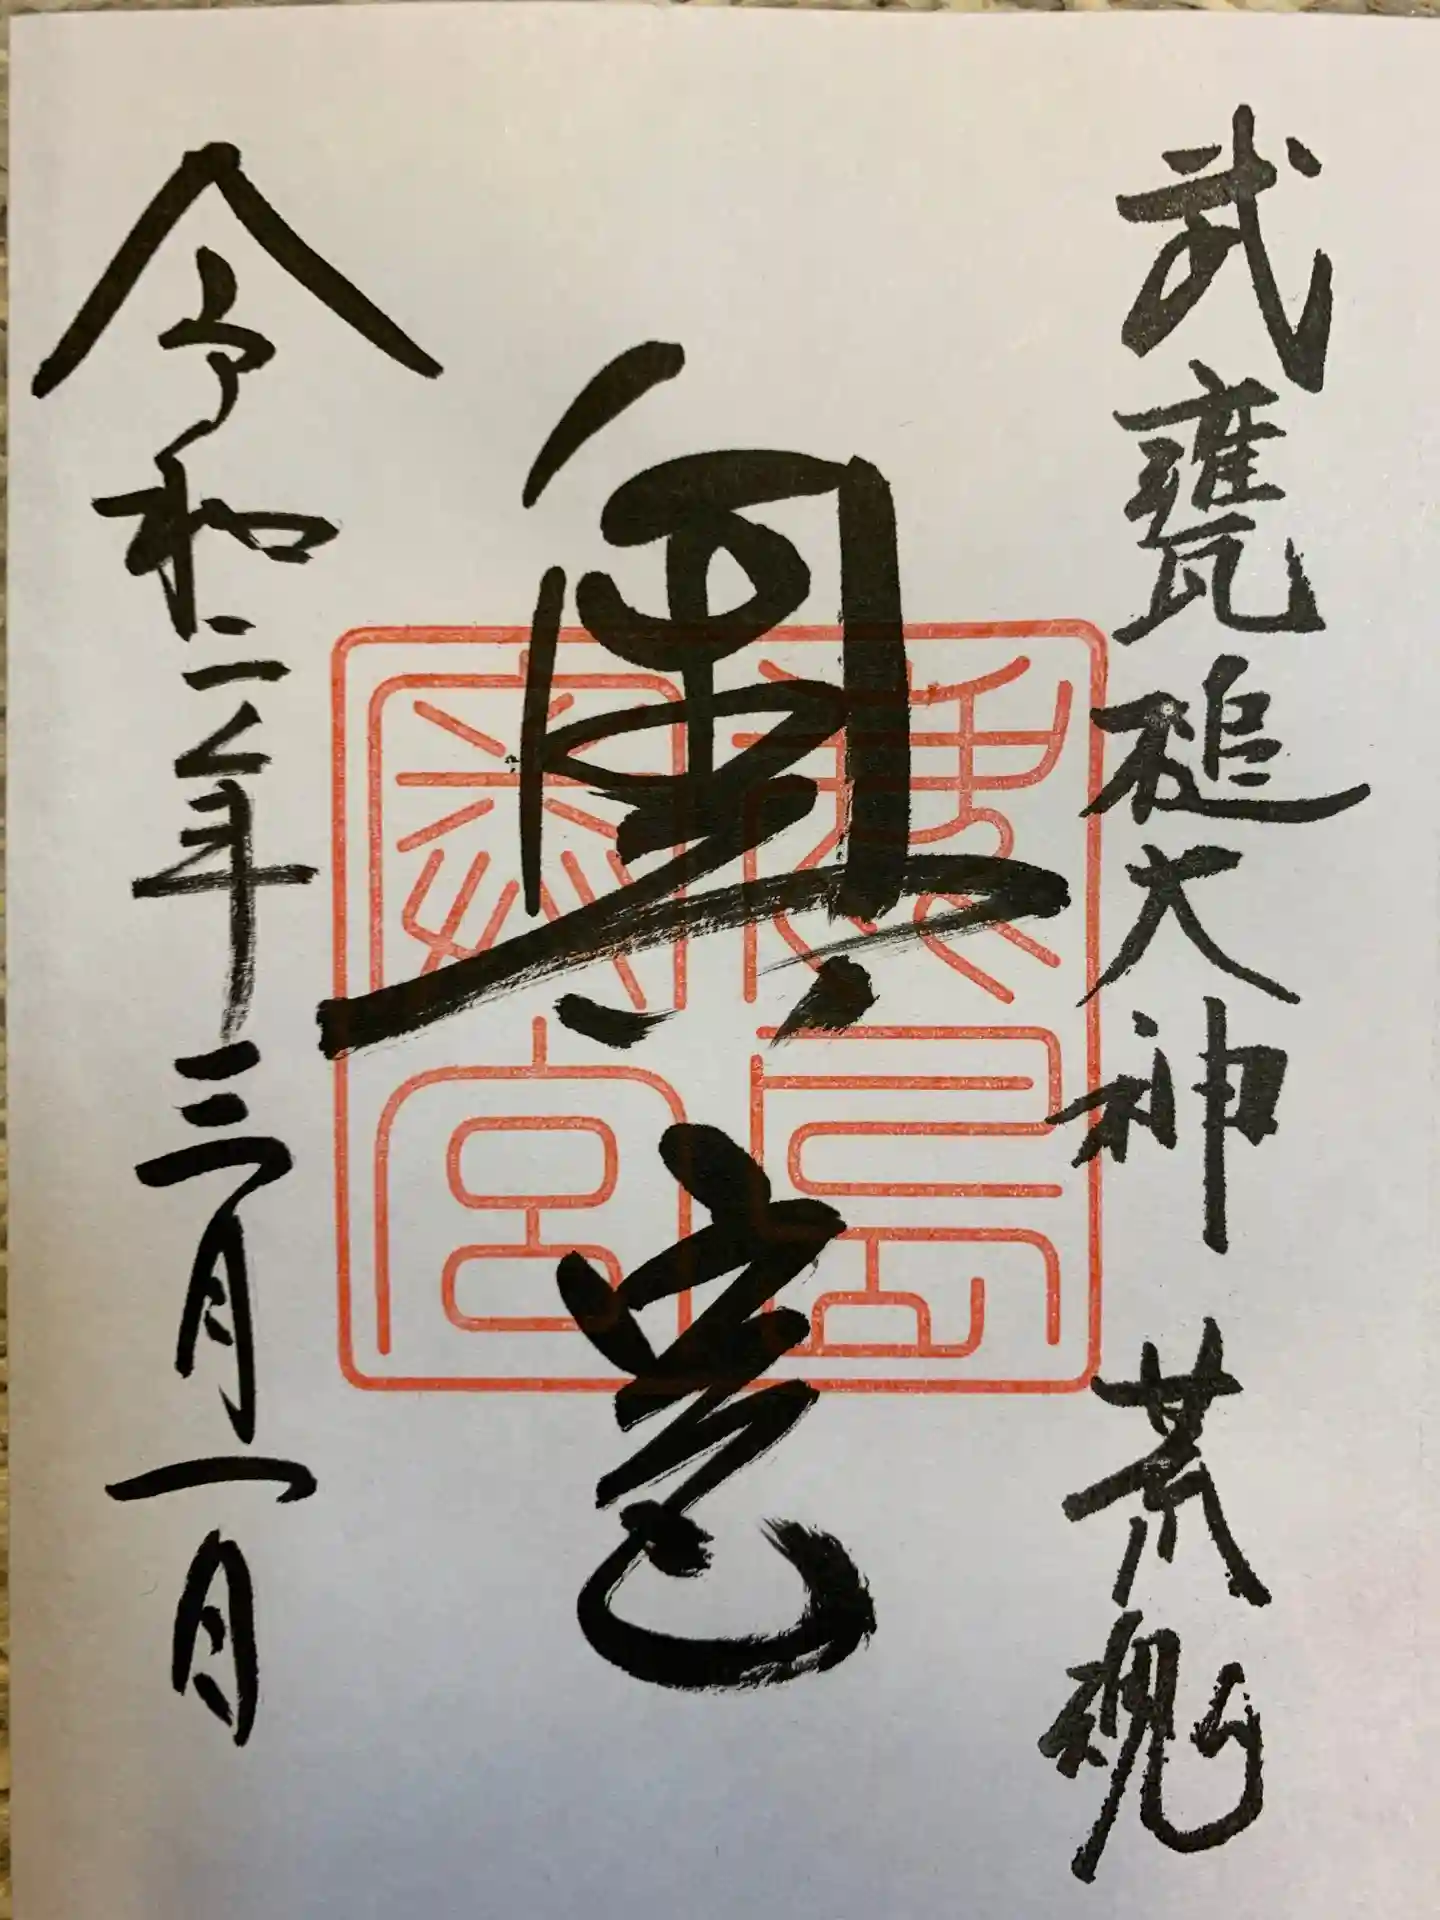 武甕槌大神 荒魂
奥宮
令和二年三月一日
鹿島
奥宮